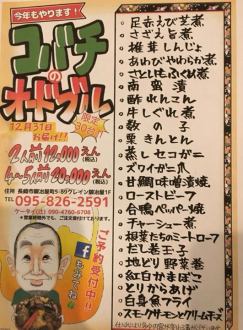 今年もやります!
コバチ
の
オードブル
限定
30台
12月31日
お届け!!
2人前12,000えん
(税込)
4~5人前20,000えん
(税込)
住所 長崎市鍛冶屋町5-89グレイン鍛冶屋1F
TEL 095-826-2591
ケータイ(出) 090-4760-6708
ご予約受付中!!
f もみてね
・足赤えび芝煮
・さざえ旨煮
・椎茸しんじょ
・あわびやわらか煮
・さといもふくめ煮
・南蛮漬
・酢れんこん
・牛しぐれ煮
・数の子
・栗きんとん
・蒸しセコガニ
・ズワイガニ爪
・甘鯛味噌漬焼
・ローストビーフ
・合鴨ペッパー焼
・チャーシュー煮
・根菜たちのミートローフ
・だし巻玉子
・地どり野菜巻
・紅白かまぼこ
・とりからあげ
・白身魚フライ
・スモークサーモンとクリームチーズ